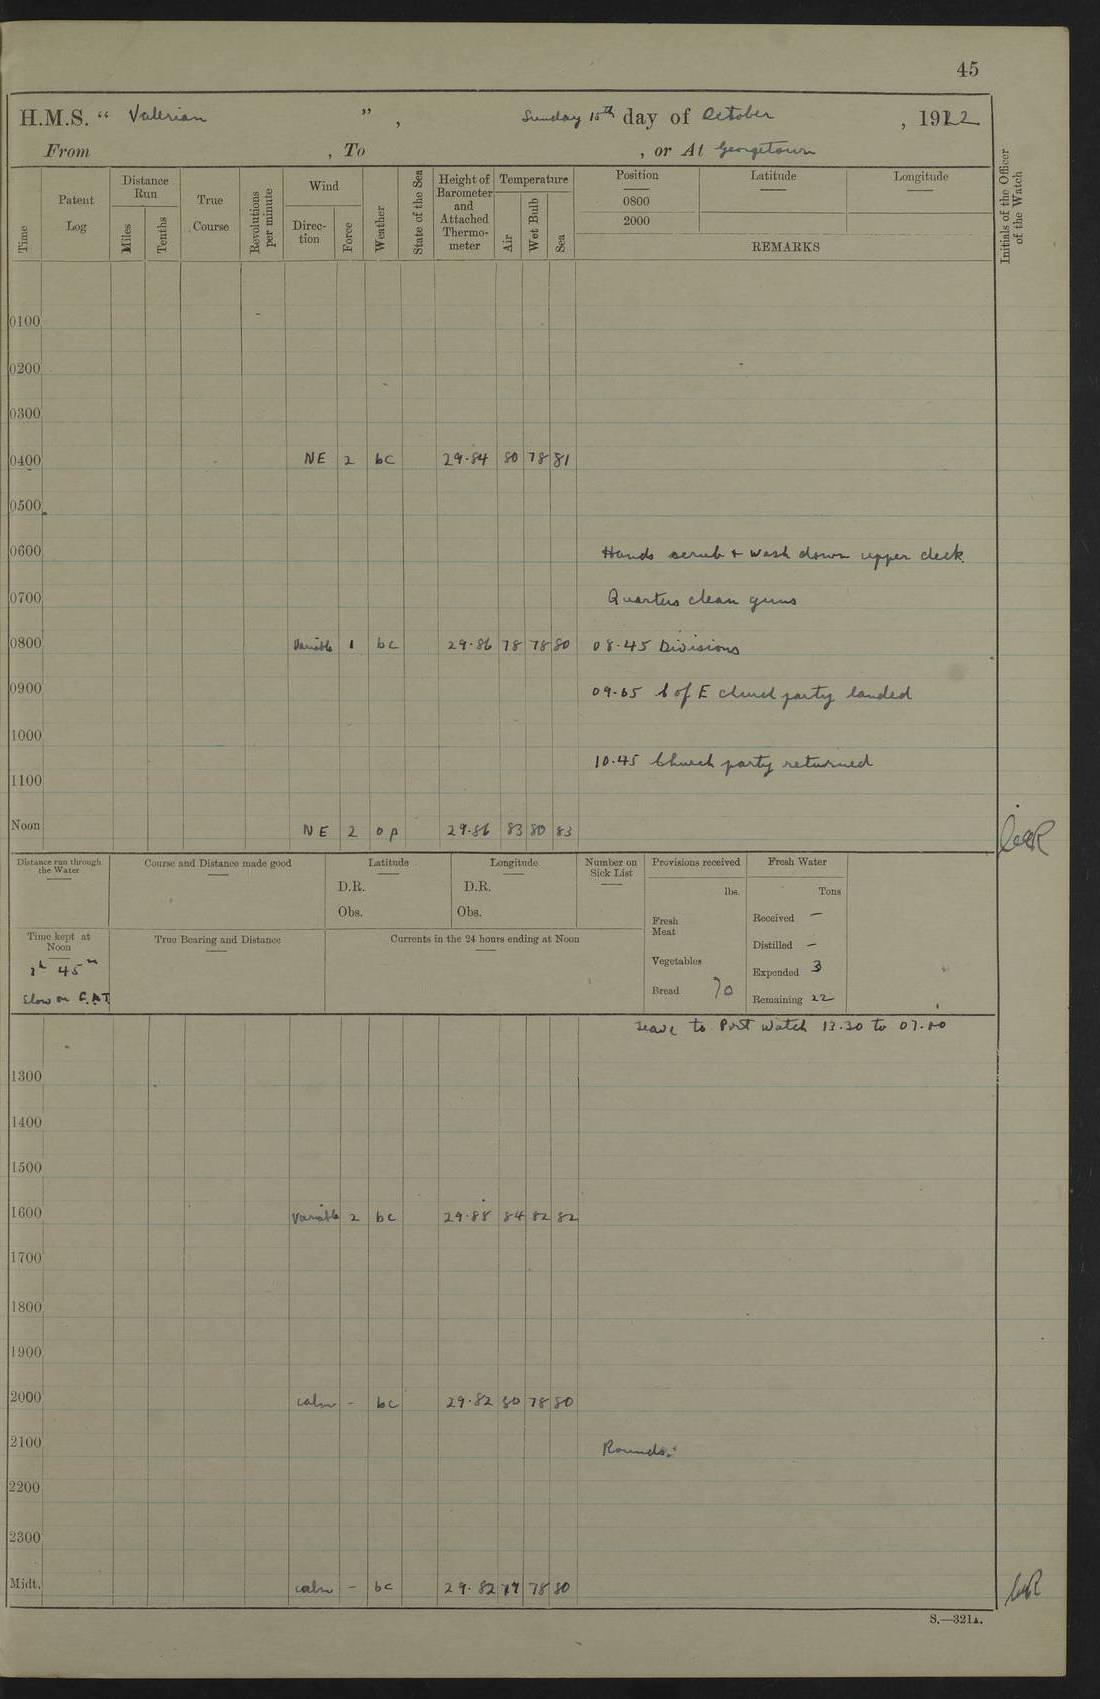 45
H.M.S. “ Valerian ” , Sunday 15th day of October , 1922
From , To , or At Georgetown
Time
Patent Log
Distance Run
Miles
Tenths
True Course
Revolutions per minute
Wind
Direction
Force
Weather
State of the Sea
Height of Barometer and Attached Thermometer
Temperature
Air
Wet Bulb
Sea
Position
0800
2000
Latitude
Longitude
REMARKS
Initials of the Officer of the Watch
0100
0200
0300
0400 NE 2 bc 29·84 80 78 81
0500
0600 Hands scrub + wash down upper deck.
0700 Quarters clean guns
0800 Variable 1 bc 29·86 78 78 80 08·45 Divisions
0900 C of E church party landed
1000
10·45 Church party returned
1100
Noon NE 2 op 29·86 83 80 83
Distance run through the Water
Course and Distance made good
Latitude
D.R.
Obs.
Longitude
D.R.
Obs.
Number on Sick List
Provisions received
lbs.
Fresh Meat
Vegetables
Bread 70
Fresh Water
Tons
Received —
Distilled —
Expended 3
Remaining 22
Time kept at Noon
45m
Slow on G.M.T.
True Bearing and Distance
Currents in the 24 hours ending at Noon
Leave to Port Watch 13.30 to 07.00
1300
1400
1500
1600 Variable 2 bc 29·88 84 82 82
1700
1800
1900
2000 calm - bc 29·82 80 78 80
2100 Rounds.
2200
2300
Midt. calm - bc 29·82 79 78 80
S.—321A.